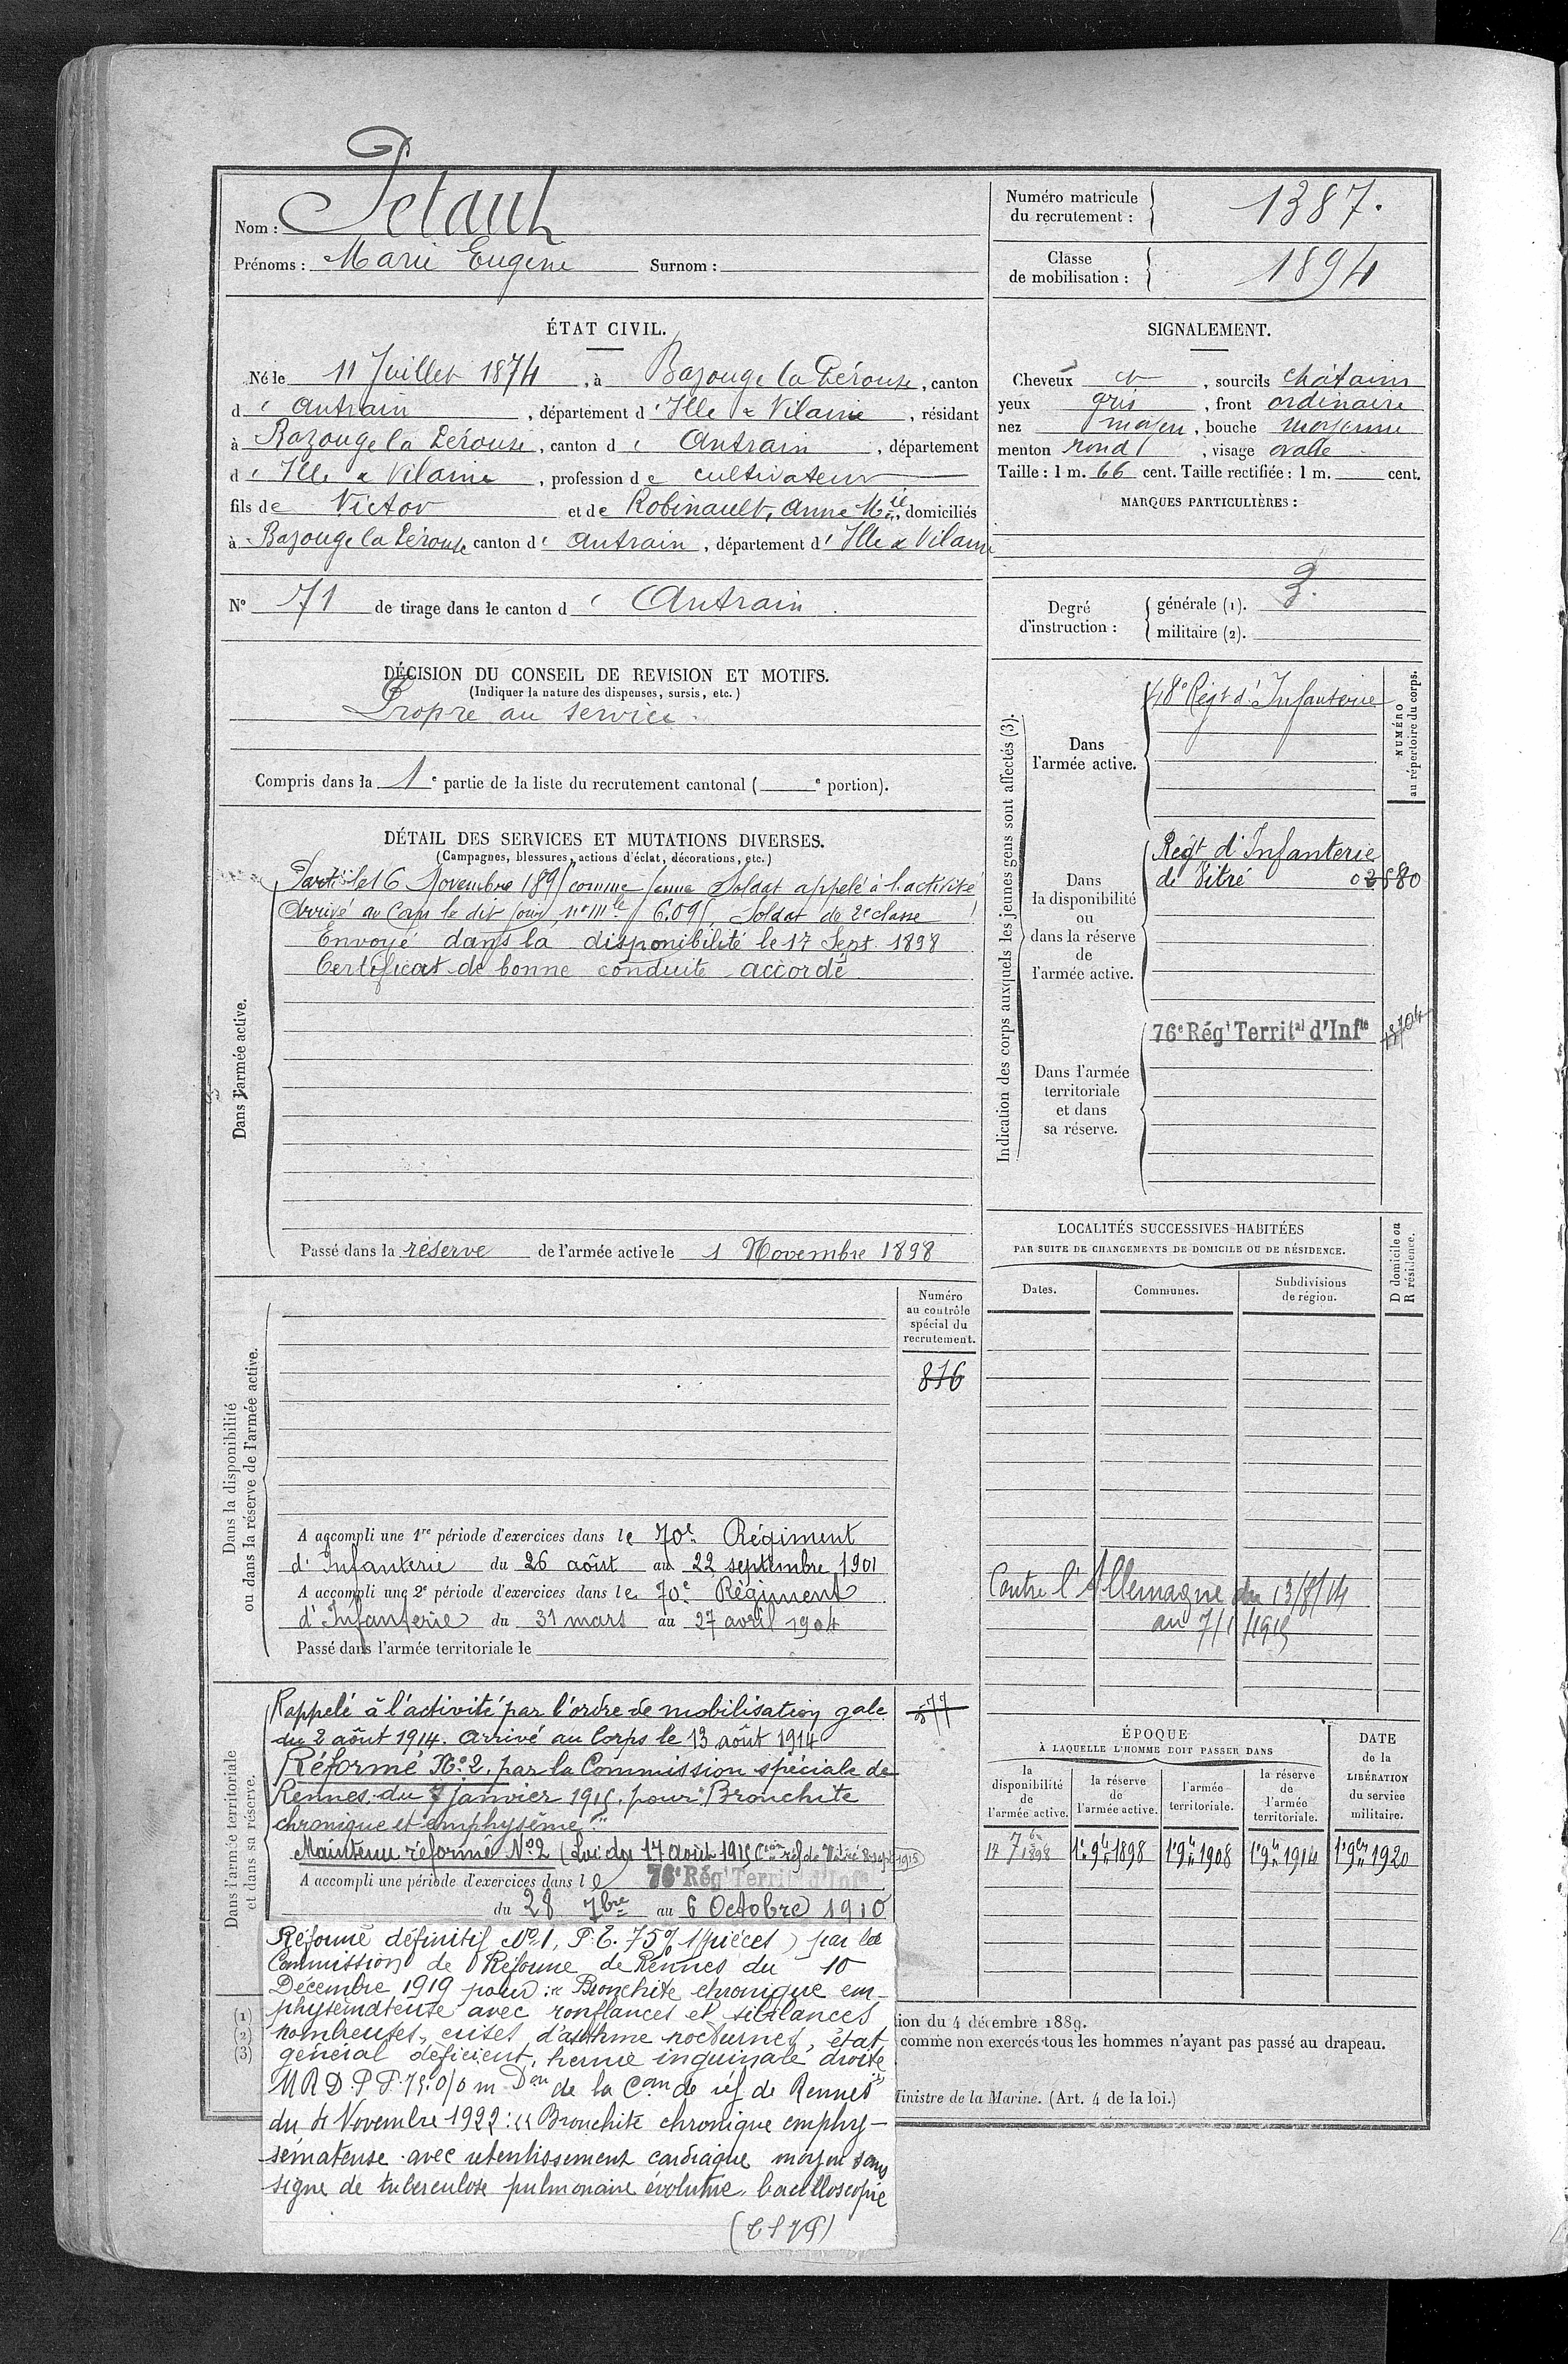 Nom : Petault
Prénoms : Marie Eugène Surnom :
Numéro matricule du recrutement : 1387.
Classe de mobilisation : 1894
ÉTAT CIVIL.
Né le 11 Juillet 1874, à Bazouge la Pérouse, canton
d'Antrain, département d'Ille & Vilaine, résidant
à Bazouge la Pérouse, canton d' Antrain, département
d'Ille & Vilaine, profession de cultivateur
fils de Victor et de Robinault, Anne Mie, domiciliés
à Bazouge la Pérouse canton d' Antrain, département d'Ille & Vilaine
N° 71 de tirage dans le canton d' Antrain.
SIGNALEMENT.
Cheveux et, sourcils châtains
yeux gris, front ordinaire
nez moyen, bouche moyenne
menton rond, visage ovale
Taille : 1 m. 66 cent. Taille rectifiée : 1 m. cent.
MARQUES PARTICULIÈRES :
Degré d'instruction :
générale (1). 3.
militaire (2).
DÉCISION DU CONSEIL DE REVISION ET MOTIFS.
(Indiquer la nature des dispenses, sursis, etc.)
Propre au service.
Compris dans la 1e partie de la liste du recrutement cantonal ( e portion).
DÉTAIL DES SERVICES ET MUTATIONS DIVERSES.
(Campagnes, blessures, actions d'éclat, décorations, etc.)
Dans l'armée active.
Parti le 16 Novembre 1895 comme jeune Soldat appelé à l'activité
Arrivé au Corps le dit jour, no mle 6.095, Soldat de 2e classe
Envoyé dans la disponibilité le 17 Sept. 1898
Certificat de bonne conduite accordé
Passé dans la réserve de l'armée active le 1 Novembre 1898
Indication des corps auxquels les jeunes gens sont affectés (3).
NUMÉRO au répertoire du corps.
Dans l'armée active.
48e Régt d'Infanterie
Dans la disponibilité ou dans la réserve de l'armée active.
Régt d'Infanterie
de Vitré
Dans l'armée territoriale et dans sa réserve.
76e Régt Territal d'Infie
LOCALITÉS SUCCESSIVES HABITÉES
PAR SUITE DE CHANGEMENTS DE DOMICILE OU DE RÉSIDENCE.
Dates. Communes. Subdivisions de région.
D domicile ou R résidence.
Contre l'Allemagne du 13/8/14
au 7/1/1915
Dans la disponibilité ou dans la réserve de l'armée active.
Numéro au contrôle spécial du recrutement.
876
A accompli une 1re période d'exercices dans le 70e Régiment
d'Infanterie du 26 août au 22 septembre 1901
A accompli une 2e période d'exercices dans le 70e Régiment
d'Infanterie du 31 mars au 27 avril 1904
Passé dans l'armée territoriale le
Dans l'armée territoriale et dans sa réserve.
Rappelé à l'activité par l'ordre de mobilisation gale
du 2 août 1914. Arrivé au Corps le 13 août 1914
Réformé No 2. par la Commission spéciale de
Rennes du 7 janvier 1915. pour "Bronchite
chronique et emphysème"
Maintenu réformé No 2 (Loi du 17 août 1915
A accompli une période d'exercices dans le 76e Régt Territal d'Infie
du 28 7bre au 6 Octobre 1910
ÉPOQUE
À LAQUELLE L'HOMME DOIT PASSER DANS
la disponibilité de l'armée active.
la réserve de l'armée active.
l'armée territoriale.
la réserve de l'armée territoriale.
DATE de la LIBÉRATION du service militaire.
17 7bre 1898 1er 9bre 1898 1er 9bre 1908 1er 9bre 1914 1er 9bre 1920
Réformé définitif No 1, P.T. 75% par la
Commission de Réforme de Rennes du 10
Décembre 1919 pour : "Bronchite chronique em-
physémateuse avec ronflances et sibilances
nombreuses, crises d'asthme nocturnes, état
général déficient, hernie inguinale droite"
M R D. P P. 75. 0/0 m Don de la Con de réf de Rennes
du 4 Novembre 1922 : "Bronchite chronique emphy-
sémateuse avec retentissement cardiaque moyen sans
signe de tuberculose pulmonaire évolutive, bacilloscopie
(1)
(2)
(3)
ion du 4 décembre 1889.
comme non exercés tous les hommes n'ayant pas passé au drapeau.
Ministre de la Marine. (Art. 4 de la loi.)